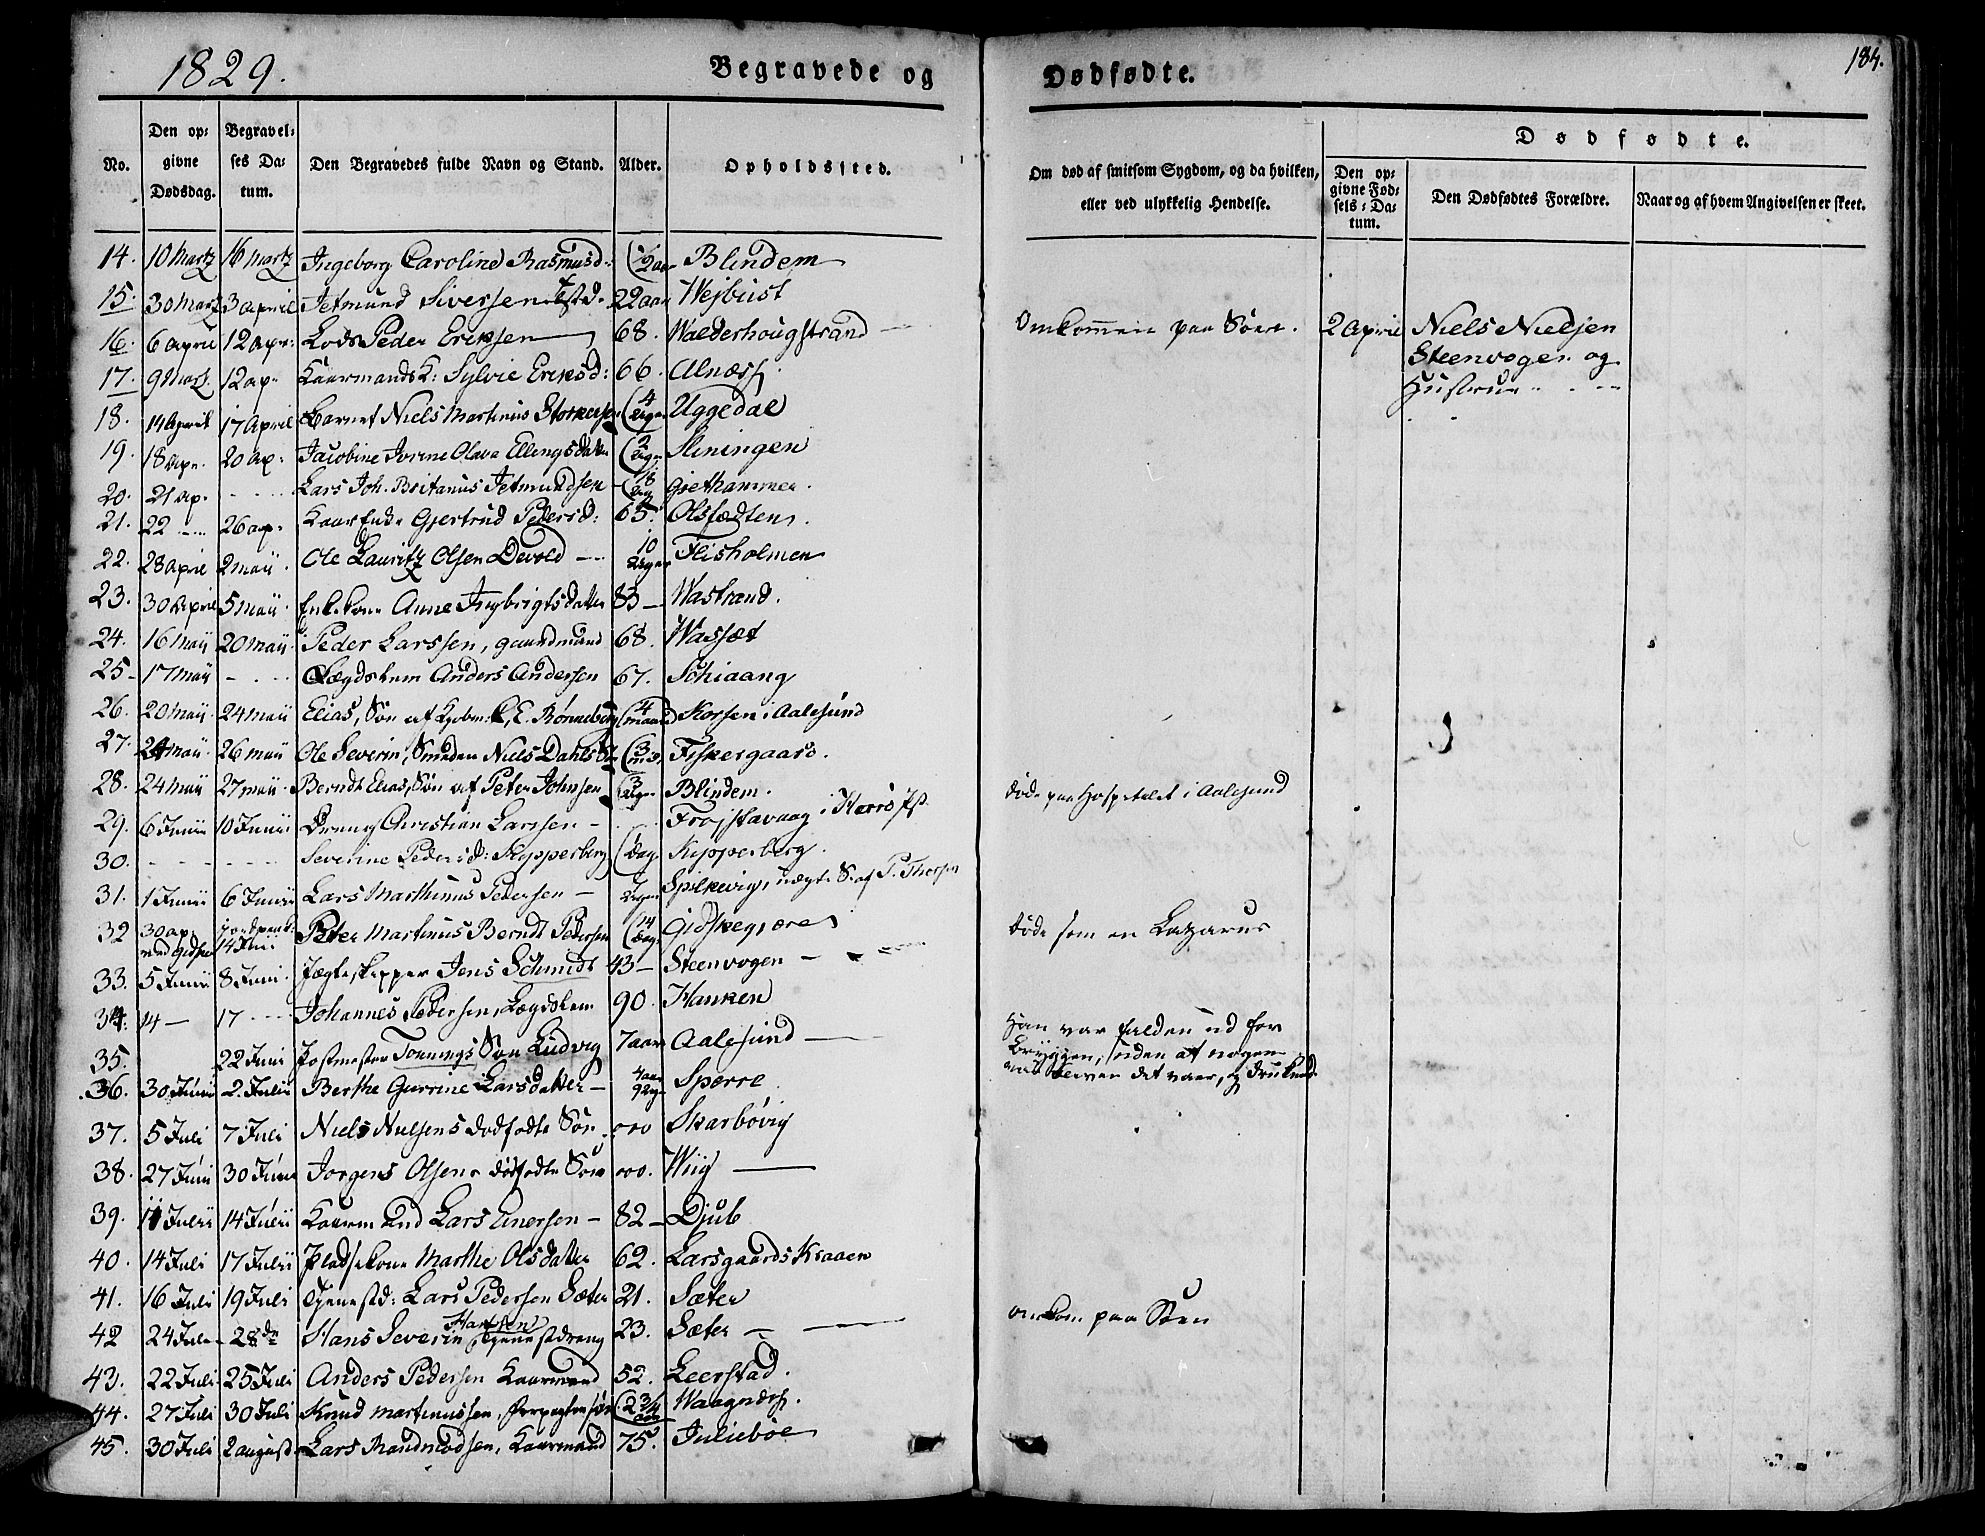 1829.
Begravede og
Dødfødte.
184.
No.
Den op=
givne
Dødsdag.
Begravel=
ses Da=
tum.
Den Begravedes fulde Navn og Stand.
Alder.
Opholdssted.
Om død af smitsom Sygdom, og da hvilken,
eller ved ulykkelig Hendelse.
Dødfødte.
Den op=
givne Fød=
sels=Da=
tum.
Den Dødfødtes Forældre.
Naar og af hvem Angivelsen er skeet.
14. 10 Martz 16 Martz Ingeborg Caroline Rasmusd: 1/2 aar Blindem
15. 30 Martz 3 April Jetmund Siversen 22 aar Wejbust
16. 6 April 12 Apr: Lods Peder Eriksen 68. Walderhougstrand
Omkommen paa Søen. 2 April Niels Nielsen
Steenvogen og
Hustrue
17. 9 Mart. 12 ap. Kaarmands K: Sylvie Eriksd: 66. Alnæss
18. 14 April 17 April Barnet Niels Martinus Storkersen 4 Uger Uggedal
19. 18 Apr. 20 Ap: Jacobine Ivrine Olava Ellingsdatter 2 Uger Sleningen
20. 21 Ap. Lars Joh. Britanus Jetmundsen 18 Dag Gjethammer.
21. 22 26 ap. Kaar Enke Gjertrud Pedersd: 65. Olsfædten
22. 28 April 2 Maii Ole Lauritz Olsen Devold 10 Uger Flisholmen
23. 30 April 5 Maii Enkekone Anne Ingbrigtsdatter 83 Wastrand.
24. 16 Maii 20 Maii Peder Larssen, gaardmand 68. Wassæt
25 17 Maii Lægdslem Anders Andersen 67. Schiaang
26. 20 Maii 24 Maii Elias, Søn af Kjøbm: E. Rønneberg 4 maaned Korsen i Aalesund
27. 24 Maii 26 Maii Ole Severin, Smeden Niels Dahls S. 3 Fiskergaard.
28. 24 Maii 27 Maii Berndt Elias, Søn af Peter Johnsen 3 Uger Blindem.
29. 6 Junii 10 Junii Dreng Christian Larssen Frøjstavaag i Herrø
døde paa Hospetalet i Aalesund
30. Severine Pedersd: Kipperberg Dag. Kipperberg.
31. 1 Junii 6 Junii Lars Marthinus Pedersen Uger Spilkevig, uægte S. af P. Thorsen
32 30 ap. 14 Juni Peter Martinus Berndt Pedersen 14 Dage Gidskegjære
33. 5 Junii 8 Juni. Jægteskipper Jens Schmidt 43 Steenvogen
døde som en Lazarus
34. 14 17 Johannes Pedersen, Lægdslem 90. Hanken
35. 22 Juni Postmester Tonnings Søn Ludvig 7 aar Aalesund
Han var falden ud for
Bryggen, uden at nogen
blev det vaer, og druknede
36. 30 Junii 2. Julii Berthe Gurrine Larsdatter Sperre
37. 5 Juli 7 Juli Niels Nielsens dødfødte Søn 000 Skarbøvig
38. 27 Juni 30 Juni Jørgens Olsens dødfødte Søn 000. Wiig
39. 11 Julii 14 Julii Kaarmand Lars Einersen 82 Djub
40. 14 Juli 17 Julii Pladsekone Marthe Olsdatter 62. Larsgaards Kraaen
41. 16 Juli 19 Juli Tjenestd: Lars Pedersen Sæter 21. Sæter
42 24 Juli 28 de Hans Severin Hansen Tjenestdreng 23. Sæter
omkom paa Søen
43. 22 Juli 25 Juli Anders Pedersen Kaarmand 52. Leerstad.
44. 27 Juli 30 Juli Knud Martinussen, 2 3/4 aar Waagnæss.
45. 30 Juli 2 August Lars Randmodsen, Kaarmand 75. Juliebøe